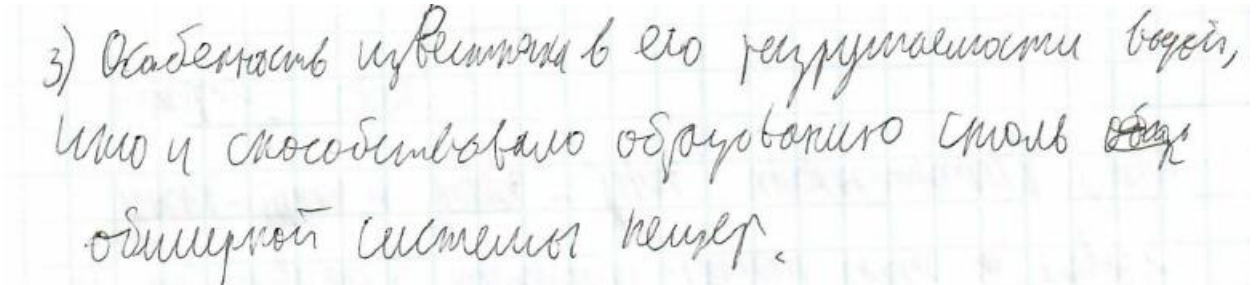 3) Особенность известняка в его разрушаемости водой,
что и способствовало образованию столь
обширной системы пещер.